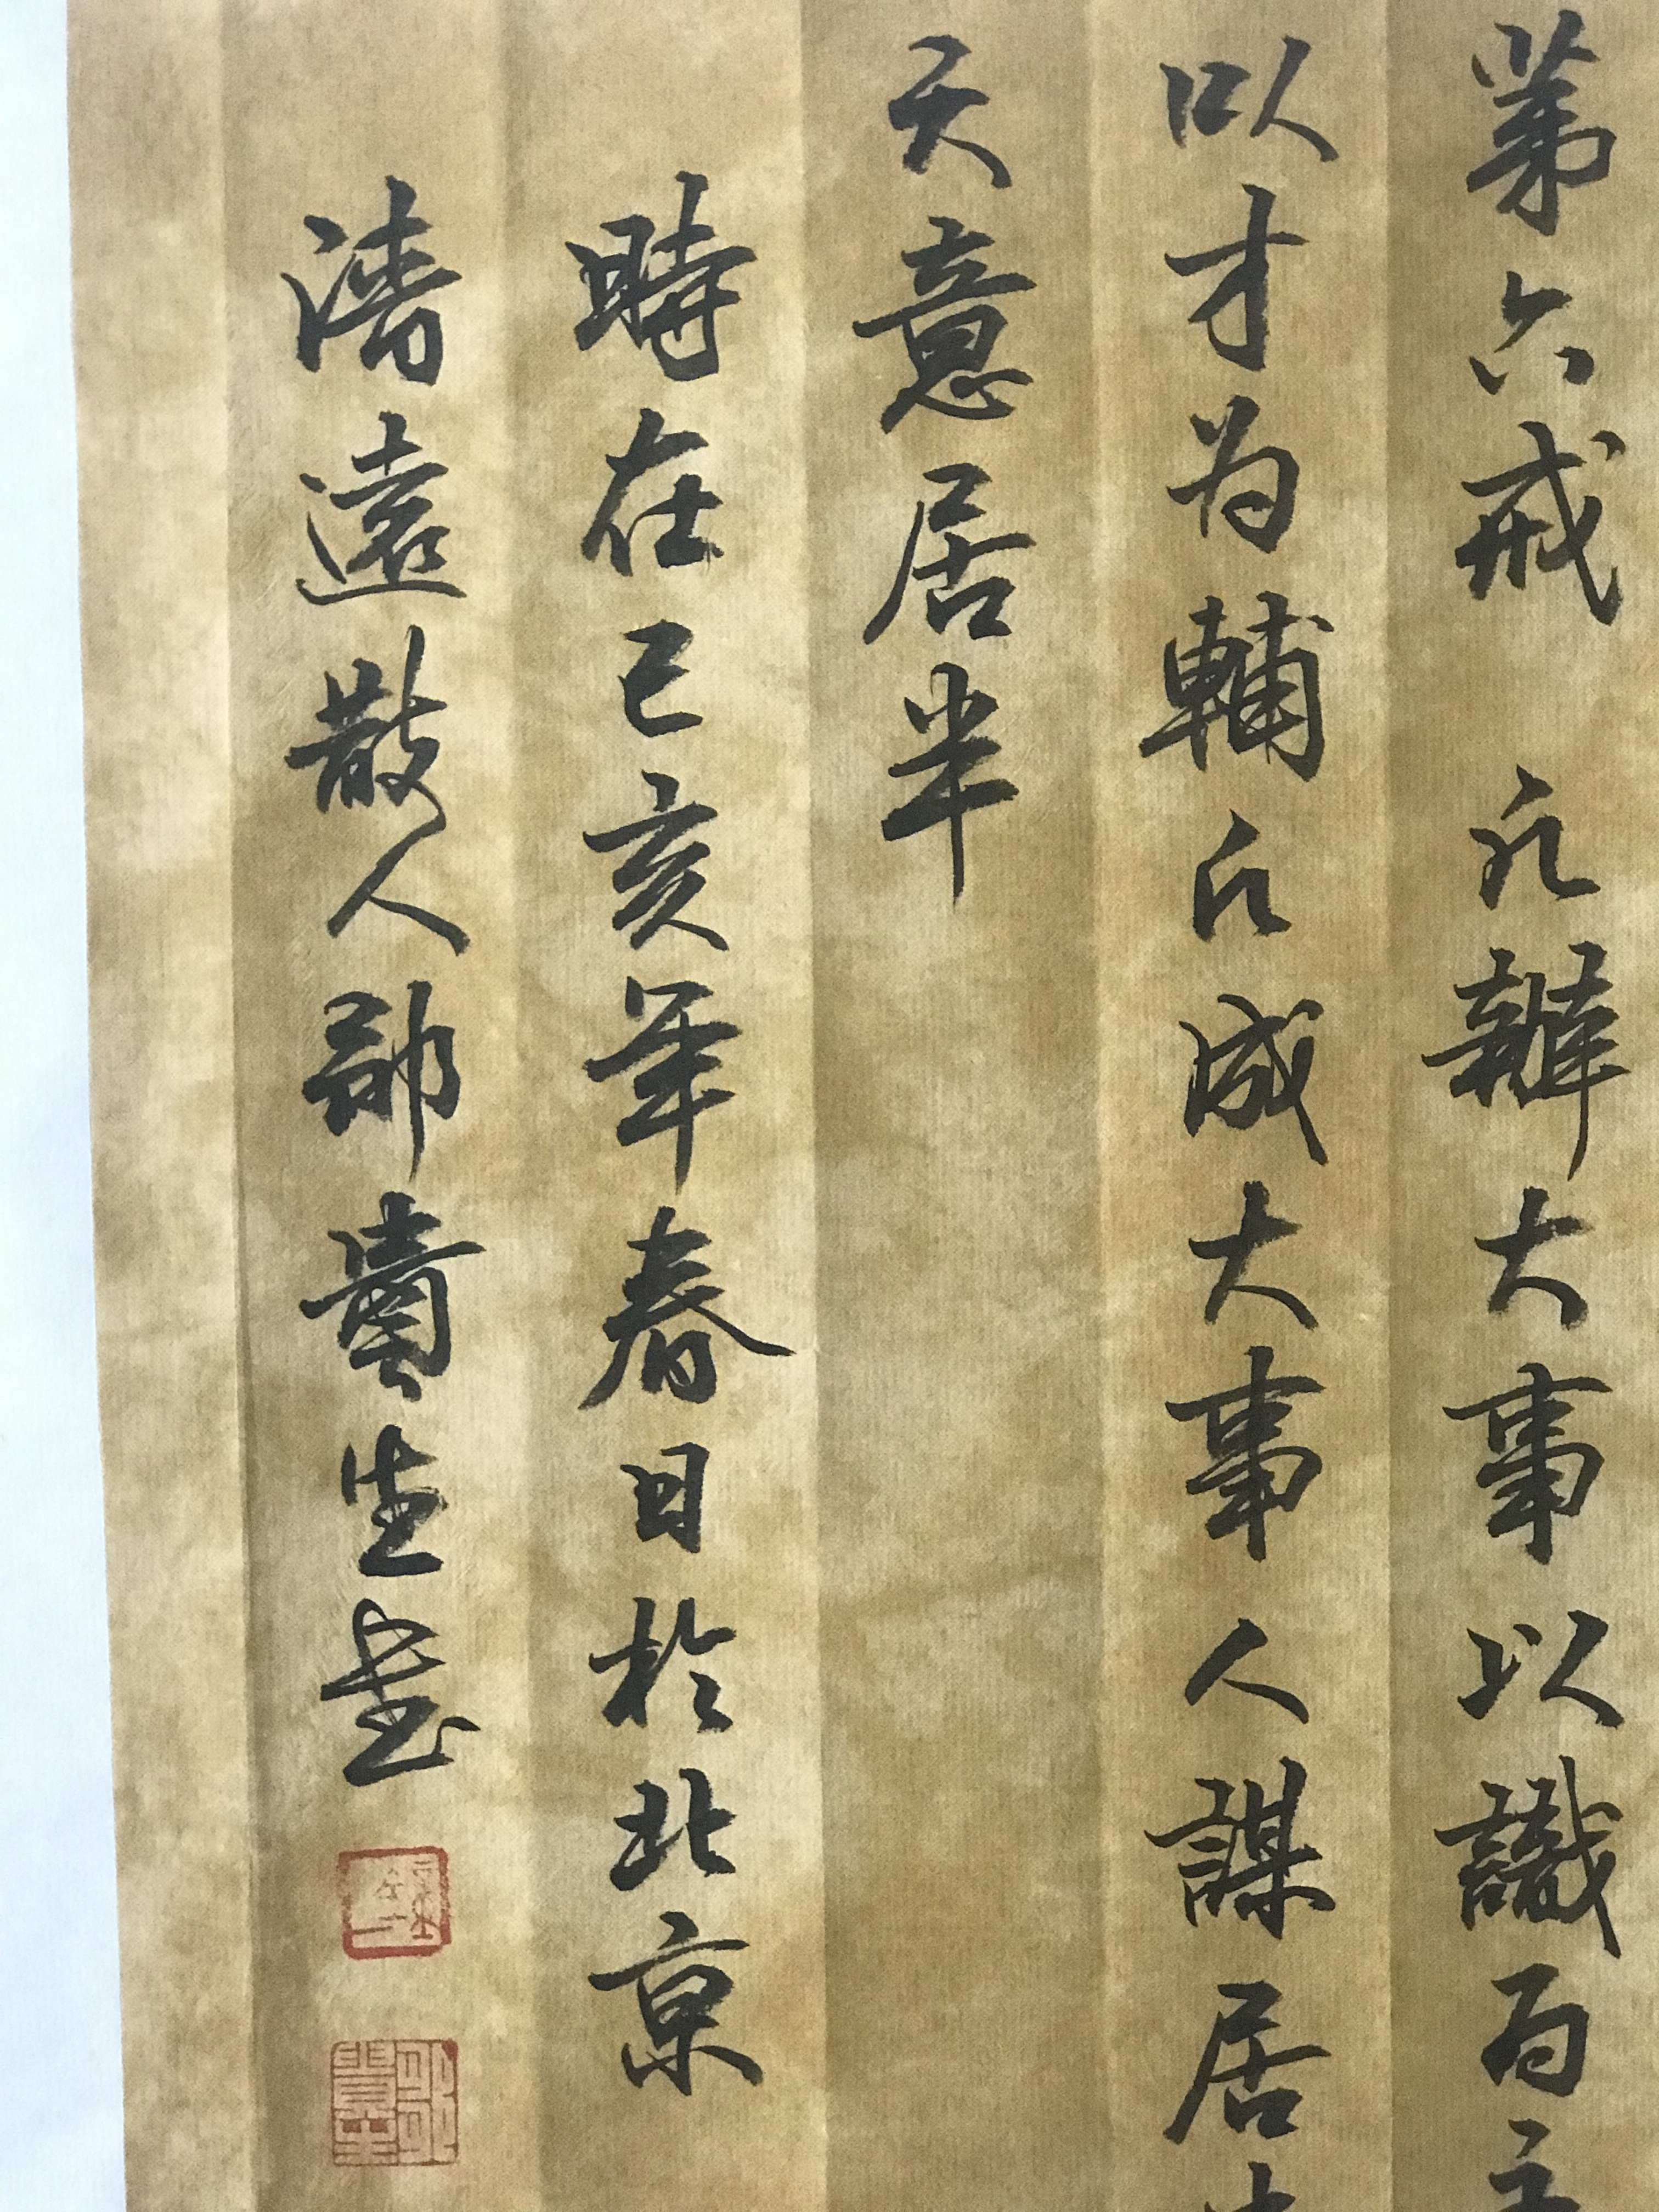 第六戒 凡辦大事以識為主
以才為輔凡成大事人謀居半
天意居半
時在己亥年春日於北京
清遠散人邵貴生書